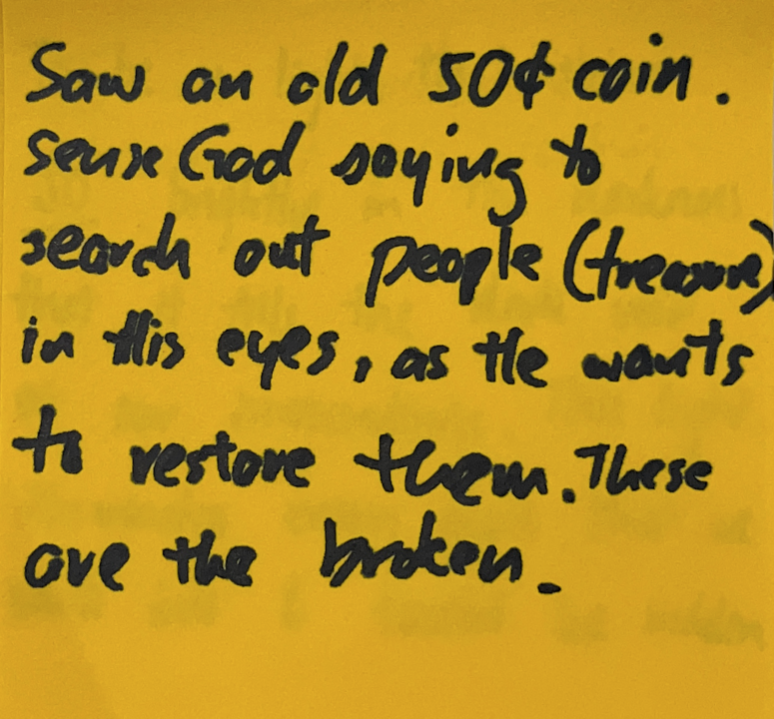 Saw an old 50¢ coin.
sense God saying to
search out people (treasure)
in His eyes, as He wants
to restore them. These
are the broken.